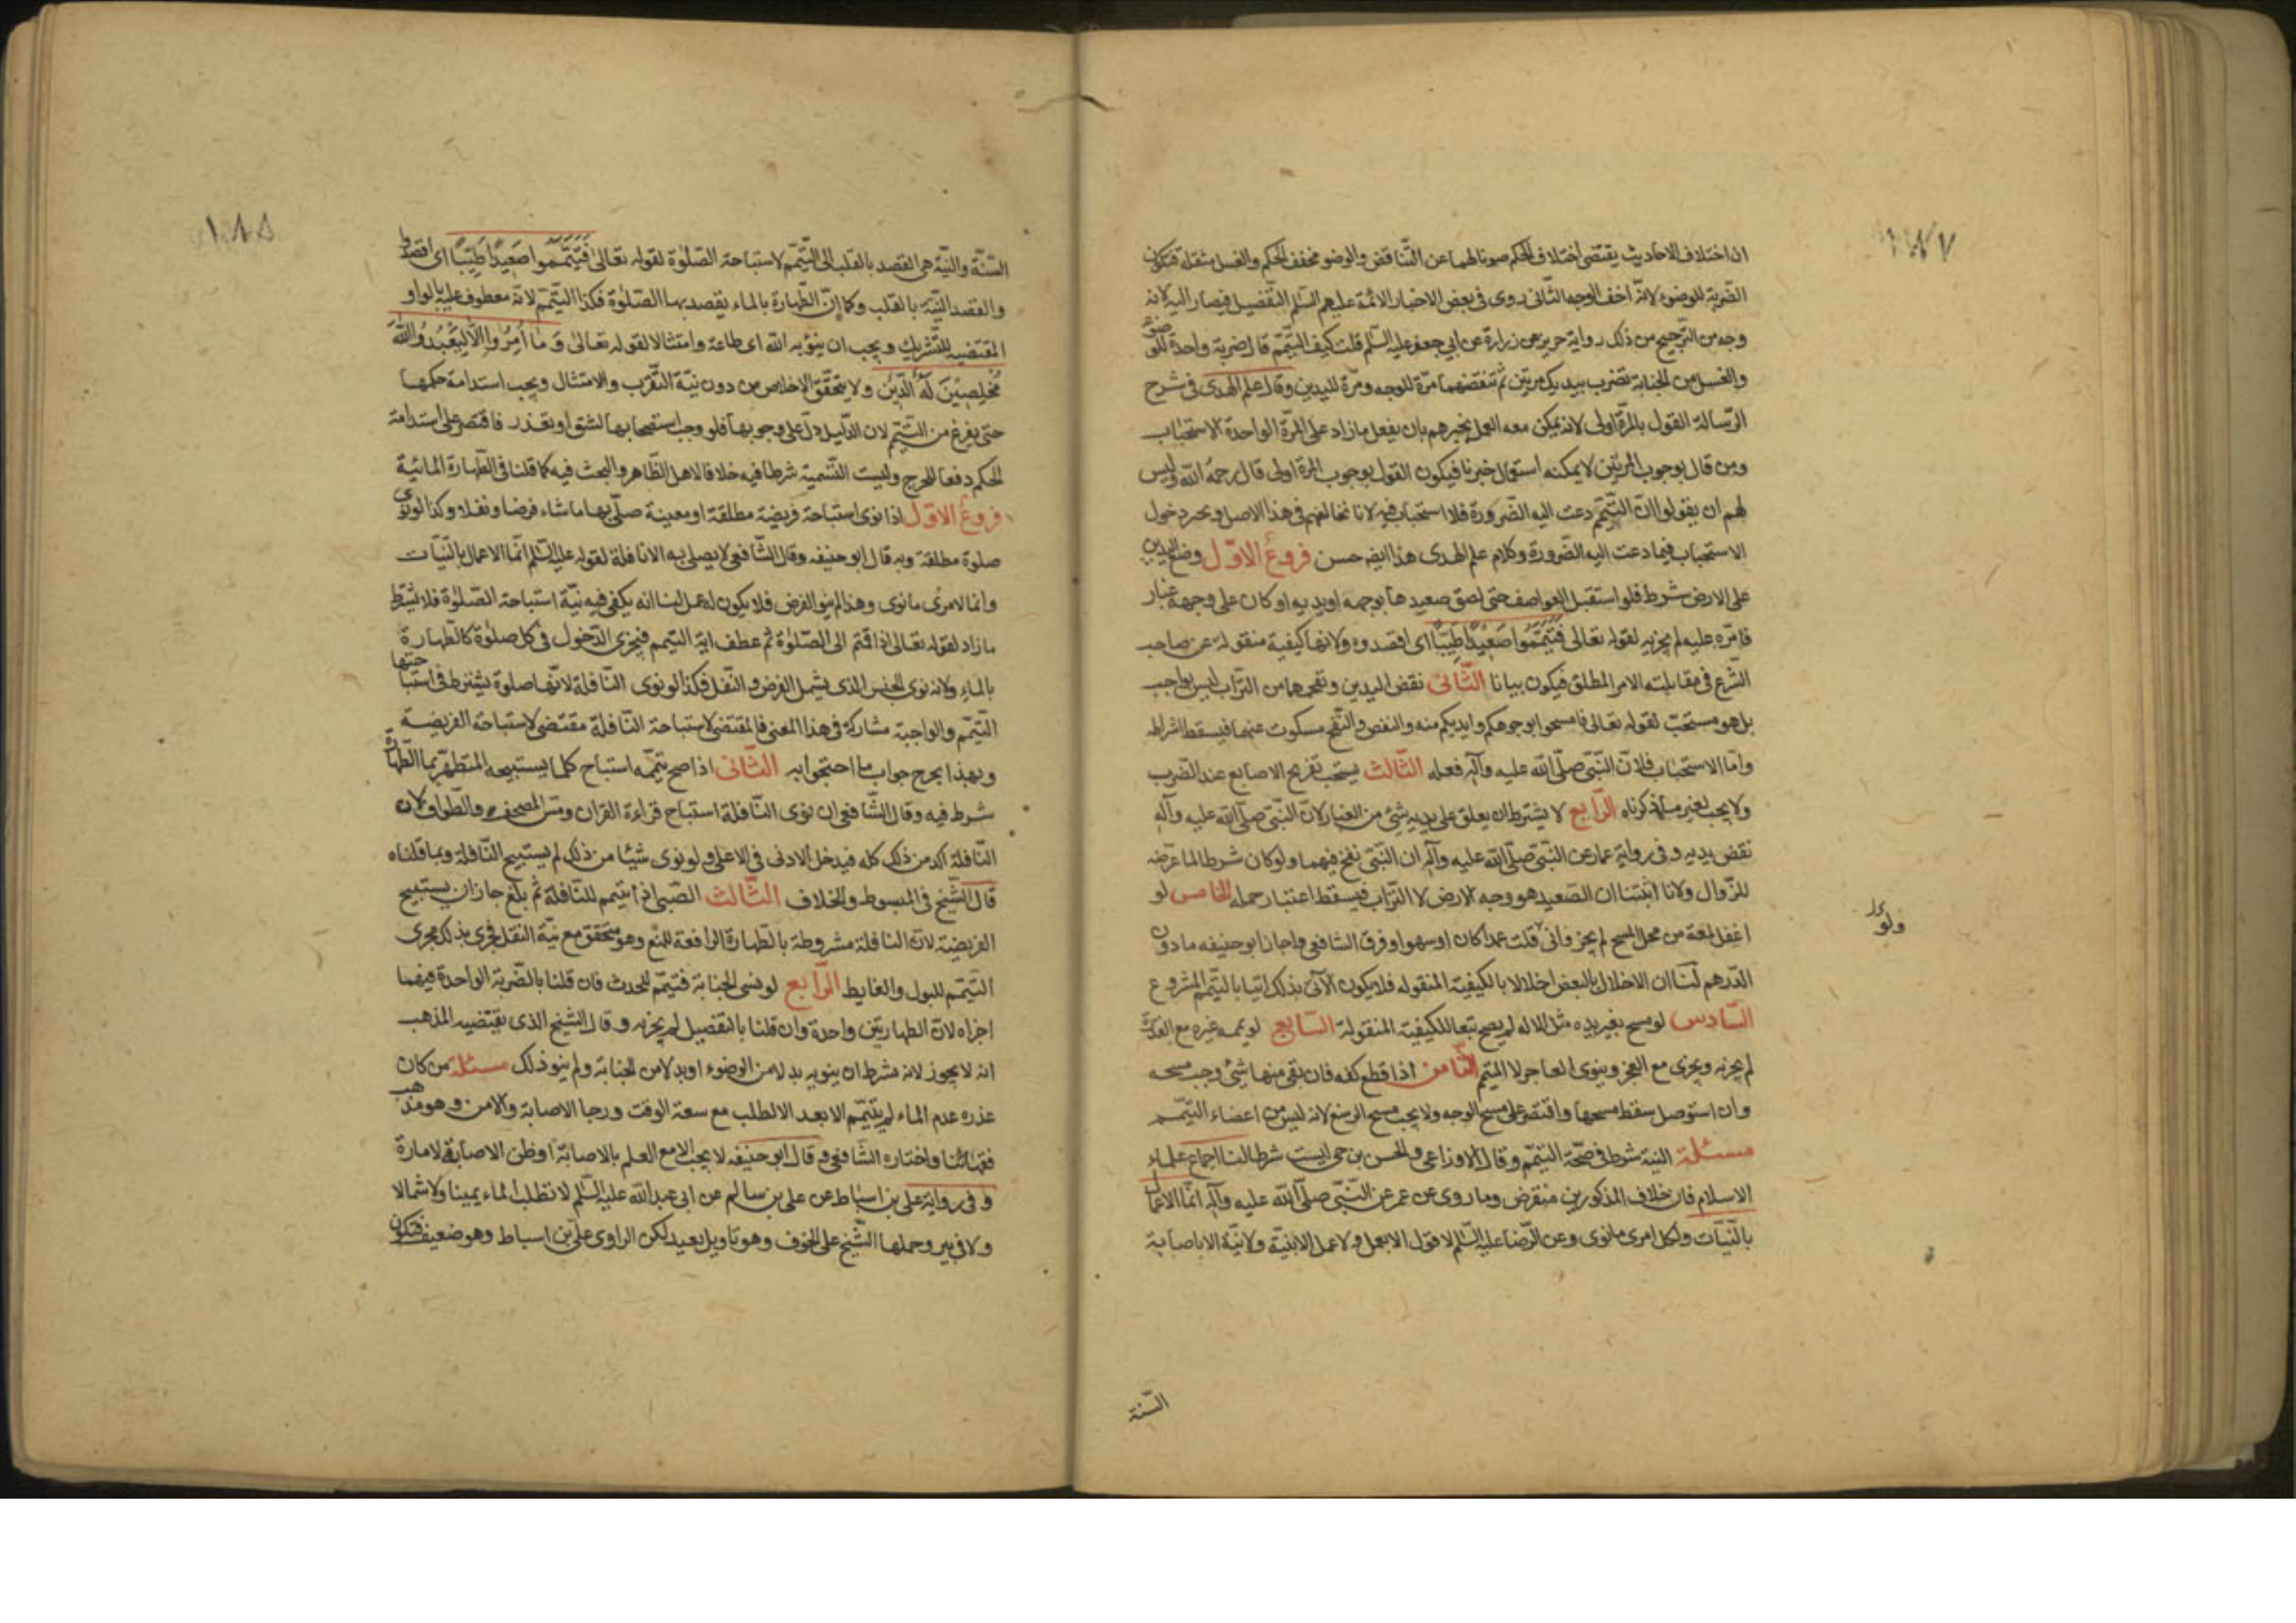 ١٨٧
ان اختلاف الاحاديث يقتضى اختلاف الحكم صونا لهما عن التناقض والوضوء مخفف الحكم والغسل مثقله فتكون
الضربة للوضوء لانه اخف الوجه الثانى روى فى بعض الاخبار الائمة عليهم السلم التفصيل فيصار اليه لانه
وجه من الترجيح من ذلك رواية حريز عن زرارة عن ابى جعفر عليه السلم قلت كيف التيمم قال ضربة واحدة للوضوء
والغسل من الجنابة تضرب بيديك مرتين ثم تنفضهما مرة للوجه ومرة لليدين وقال علم الهدى فى شرح
الرسالة القول بالمرة اولى لانه يمكن معه العمل بخبرهم بان يفعل مازاد على المرة الواحدة الاستحباب
ومن قال بوجوب المرتين لا يمكنه استعمال خبرنا فيكون القول بوجوب المرة اولى قال رحمه الله وليس
لهم ان يقولوا ان التيمم دعت اليه الضرورة فلا استحباب فيه لانا نخالفهم فى هذا الاصل ويجرد دخول
الاستحباب فيما دعت اليه الضرورة وكلام علم الهدى هذا ايضا حسن فروع الاول وضع اليدين
على الارض شرط فلو استقبل العواصف حتى لصق صعيدها بوجهه او يديه او كان على وجهه غبار
فامره عليه لم يجزيه لقوله تعالى فتيمموا صعيدا طيبا اى اقصدوه ولانها كيفية منقولة عن صاحب
الشرع فى مقابلته الامر المطلق فيكون بيانا الثانى نفض اليدين ونفخهما من التراب ليس بواجب
بل هو مستحب لقوله تعالى فامسحوا بوجوهكم وايديكم منه والنفض والنفخ مسكوت عنهما فيسقط اشتراطه
واما الاستحباب فلان النبى صلى الله عليه وآله فعله الثالث يستحب تفريج الاصابع عند الضرب
ولا يجب لغير ما ذكرناه الرابع لا يشترط ان يعلق على يديه شئ من الغبار لان النبى صلى الله عليه وآله
نفض يديه وفى رواية عمار عن النبى صلى الله عليه وآله ان النبى نفخ فيهما ولو كان شرطا لما عرضه
للزوال ولانا اثبتنا ان الصعيد هو وجه الارض لا التراب فيسقط اعتبار حمله الخامس لو
اغفل لمعة من محل المسح لم يجز وانى قلت عمدا كان او سهوا وفرق الشافعى واجاز ابو حنيفه مادون
الدرهم لنا ان الاخلال بالبعض اخلالا بالكيفية المنقوله فلا يكون الآتى بذلك اتيا بالتيمم المشروع
السادس لو مسح بغير يده مثل الاله لم يصح تبعا للكيفية المنقولة السابع لو يممه غيره مع القدرة
لم يجزه ويجزى مع العجز وينوى العاجز لا الميمم الثامن اذا قطع كفه فان بقى منها شئ وجب مسحه
وان استوصل سقط مسحها واقتصر على مسح الوجه ولا يجب مسح الرسغ لانه ليس من اعضاء التيمم
مسئلة النية شرط فى صحة التيمم وقال الاوزاعى والحسن بن حى ليست شرطا لنا اجماع علماء
الاسلام فان خلاف المذكورين منقرض وما روى عن عمر عن النبى صلى الله عليه وآله انما الاعمال
بالنيات ولكل امرى مانوى وعن الرضا عليه السلم لا قول الا بعمل ولا عمل الا بنية ولا نية الا باصابة
ولو
السنة
١٨٨
السنة والنية هى القصد بالقلب الى التيمم لاستباحة الصلوة لقوله تعالى فتيمموا صعيدا طيبا اى اقصدوا
والقصد النية بالقلب وكما ان الطهارة بالماء يقصد بها الصلوة فكذا التيمم لانه معطوف عليه بالواو
المقتضيه للتشريك ويجب ان ينوى به الله اى طاعة وامتثالا لقوله تعالى وما امروا الا ليعبدوا الله
مخلصين له الدين ولا يتحقق الاخلاص من دون نية التقرب والامتثال ويجب استدامة حكمها
حتى يفرغ من التيمم لان الدليل دل على وجوبها فلو وجب استصحابها لشق او تعذر فاقتصر على استدامة
الحكم دفعا للحرج وليست التسمية شرطا فيه خلافا لاهل الظاهر والبحث فيه كما قلنا فى الطهارة المائية
فروع الاول اذا نوى استباحة فريضة مطلقة او معينة صلى بها ما شاء فرضا ونفلا وكذا لو نوى
صلوة مطلقة وبه قال ابو حنيفه وقال الشافعى لا يصلى به الا نافلة لقوله عليه السلم انما الاعمال بالنيات
وانما لامرئ مانوى وهذا لم ينو الفرض فلا يكون له عمل لنا انه يكفى فيه نية استباحة الصلوة فلا يشترط
مازاد لقوله تعالى اذا قمتم الى الصلوة ثم عطف اية التيمم فيجزى الدخول فى كل صلوة كالطهارة
بالماء ولانه نوى الجنس الذى يشمل الفرض والنفل فكذا لو نوى النافلة لانها صلوة يشترط فى استباحتها
التيمم والواجبة مشاركة فى هذا المعنى فالمقتضى لاستباحة النافلة مقتضى لاستباحة الفريضة
وبهذا يخرج جواب ما احتجوا به الثانى اذا صح تيممه استباح كلما يستبيحه المتطهر بما الطهارة
شرط فيه وقال الشافعى ان نوى النافلة استباح قراءة القران ومس المصحف والطواف لان
النافلة اكد من ذلك كله فيدخل الادنى فى الاعلى ولو نوى شيئا من ذلك لم يستبيح النافلة وبما قلناه
قال الشيخ فى المبسوط والخلاف الثالث الصبى اذا تيمم للنافلة ثم بلغ جاز ان يستبيح
الفريضة لان النافلة مشروطة بالطهارة الرافعة للمنع وهو متحقق مع نية النفل فجرى بذلك مجرى
التيمم للبول والغايط الرابع لو نسى الجنابة فتيمم للحدث فان قلنا بالضربة الواحدة فيهما
اجزاه لان الطهارتين واحدة وان قلنا بالتفصيل لم يجزه وقال الشيخ الذى يقتضيه المذهب
انه لا يجوز لانه شرط ان ينويه بدلا من الوضوء او بدلا من الجنابة ولم ينو ذلك مسئلة من كان
عذره عدم الماء لم يتيمم الا بعد الالطلب مع سعة الوقت ورجا الاصابة والامن وهو مذهب
فقهائنا واختاره الشافعى وقال ابو حنيفه لا يجب الا مع العلم بالاصابة او ظن الاصابة لامارة
وفى رواية على بن اسباط عن على بن سالم عن ابى عبد الله عليه السلم لا تطلب الماء يمينا ولا شمالا
ولا فى بير وحملها الشيخ على الخوف وهو تاويل بعيد لكن الراوى على بن اسباط وهو ضعيف فتكون